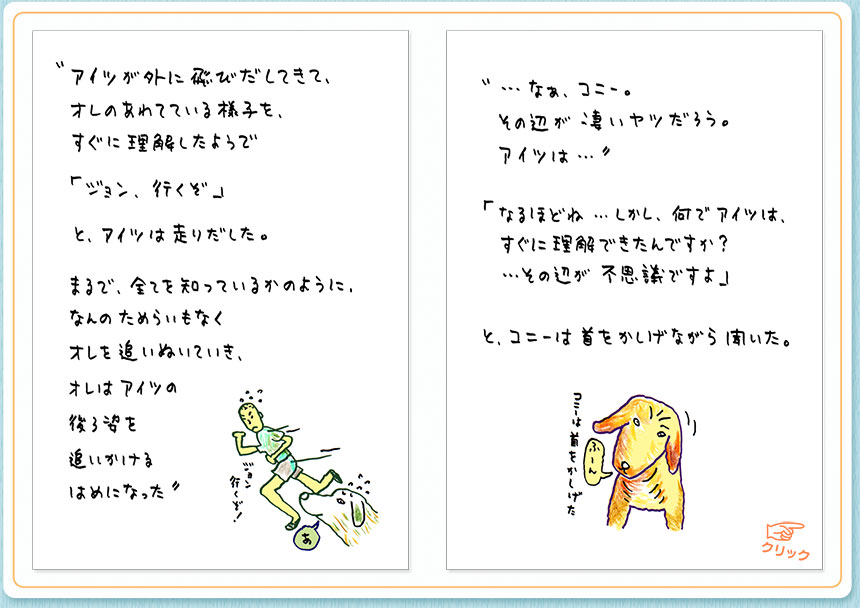 〝アイツが外に飛びだしてきて、
オレのあわてている様子を、
すぐに理解したようで
「ジョン、行くぞ」
と、アイツは走りだした。
まるで、全てを知っているかのように、
なんのためらいもなく
オレを追いぬいていき、
オレはアイツの
後ろ姿を
追いかける
はめになった〞
ジョン
行くぞ!
あ
〝…なぁ、コニー。
その辺が凄いヤツだろう。
アイツは…〞
「なるほどね…しかし、何でアイツは、
すぐに理解できたんですか?
…その辺が不思議ですよ」
と、コニーは首をかしげながら聞いた。
コニーは首をかしげた
ふーん
クリック